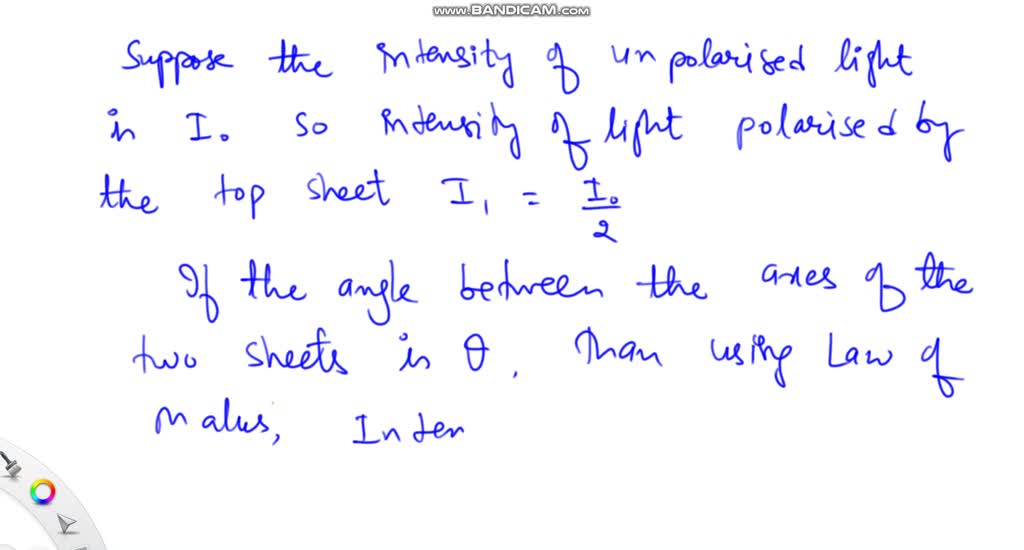 www.BANDICAM.com
Suppose the intensity of unpolarised light
is I₀ so intensity of light polarised by
the top sheet I₁ = I₀/2
If the angle between the axes of the
two sheets is θ, Than using Law of
malus, Inten